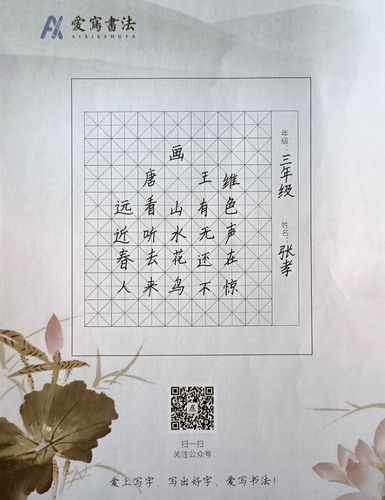 愛寫書法
AIXIESHUFA
画
唐 王维
远看山有色
近听水无声
春去花还在
人来鸟不惊
年级：三年级
姓名：张孝
扫一扫
关注公众号
爱上写字，写出好字，爱写书法！